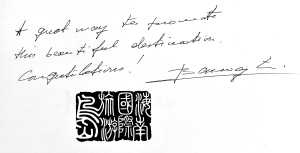 A great way to promote
this beautiful destination.
Congratulations!
海南
國際
旅游
島